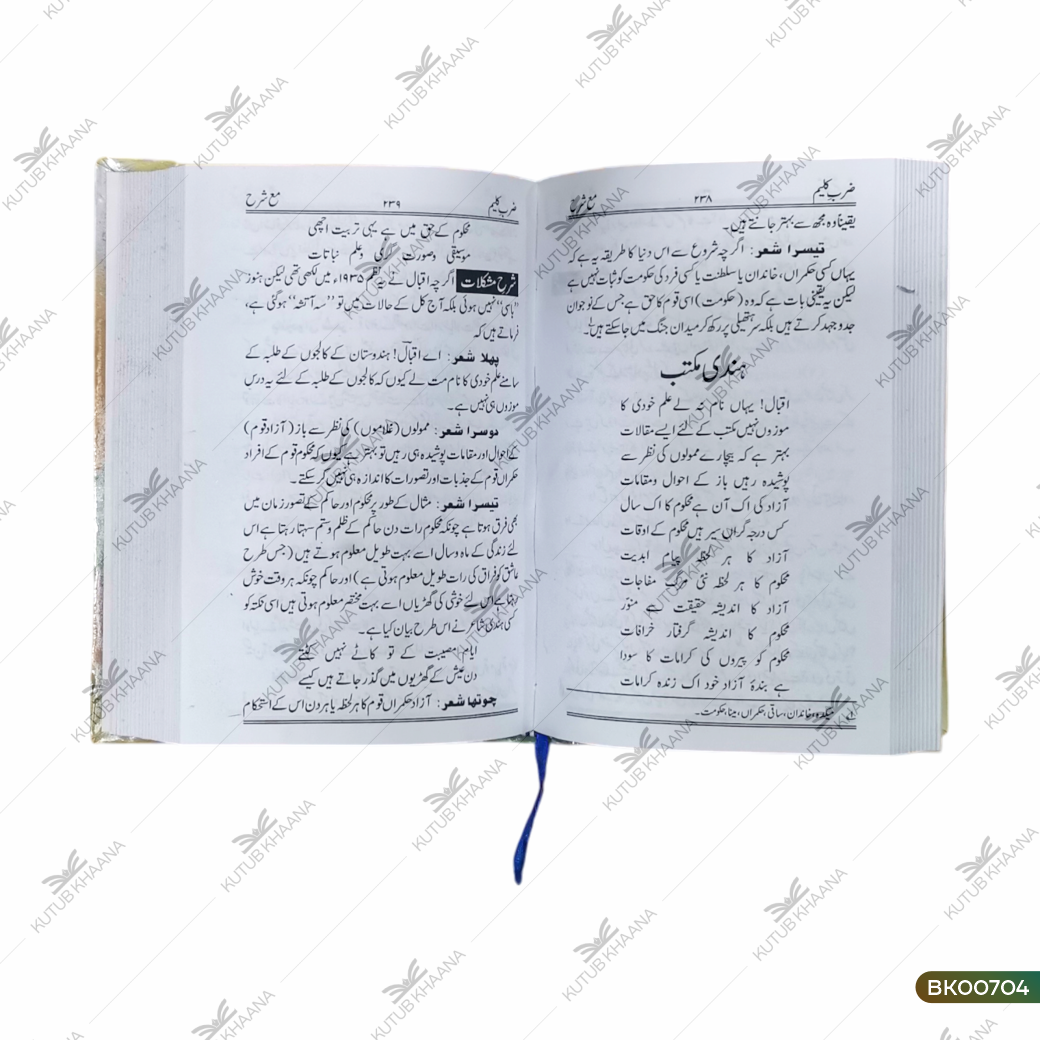 ضربِ کلیم ۲۳۸ مع شرح
یقیناً وہ مجھ سے بہتر جانتے ہیں۔
تیسرا شعر: اگرچہ شروع سے اس دنیا کا طریقہ یہ ہے کہ
یہاں کسی حکمراں، خاندان یا سلطنت یا کسی فرد کی حکومت کو ثبات نہیں ہے
لیکن یہ یقینی بات ہے کہ وہ (حکومت) اسی قوم کا حق ہے جس کے نوجوان
جدوجہد کرتے ہیں بلکہ سر ہتھیلی پر رکھ کر میدانِ جنگ میں جا سکتے ہیں۔
ہندی مکتب
اقبال! یہاں نام نہ لے علمِ خودی کا
موزوں نہیں مکتب کے لئے ایسے مقالات
بہتر ہے کہ بیچارے ممولوں کی نظر سے
پوشیدہ رہیں باز کے احوال و مقامات
آزاد کی اک آن ہے محکوم کا اک سال
کس درجہ گراں سیر ہیں محکوم کے اوقات
آزاد کا ہر لحظہ پیامِ ابدیت
محکوم کا ہر لحظہ نئی مرگِ مفاجات
آزاد کا اندیشہ حقیقت سے منوّر
محکوم کا اندیشہ گرفتارِ خرافات
محکوم کو پیروں کی کرامات کا سودا
ہے بندۂ آزاد خود اک زندہ کرامات
میکدہ، خاندان، ساقی حکمراں، مینا حکومت۔
ضربِ کلیم ۲۳۹ مع شرح
محکوم کے حق میں ہے یہی تربیت اچھی
موسیقی و صورت گری و علمِ نباتات
شرح مشکلات اگرچہ اقبال نے یہ نظم ۱۹۳۵ء میں لکھی تھی لیکن ہنوز
"باسی" نہیں ہوئی بلکہ آج کل کے حالات میں تو "سہ آتشہ" ہوگئی ہے،
فرماتے ہیں کہ
پہلا شعر: اے اقبال! ہندوستان کے کالجوں کے طلبہ کے
سامنے علمِ خودی کا نام مت لے کیوں کہ کالجوں کے طلبہ کے لئے یہ درس
موزوں ہی نہیں ہے۔
دوسرا شعر: ممولوں (غلاموں) کی نظر سے باز (آزاد قوم)
کے احوال اور مقامات پوشیدہ ہی رہیں تو بہتر ہے کیوں کہ محکوم قوم کے افراد
حکمراں قوم کے جذبات اور تصورات کا اندازہ ہی نہیں کر سکتے۔
تیسرا شعر: مثال کے طور پر محکوم اور حاکم کے تصورِ زمان میں
بھی فرق ہوتا ہے چونکہ محکوم رات دن حاکم کے ظلم و ستم سہتا رہتا ہے اس
لئے زندگی کے ماہ و سال اسے بہت طویل معلوم ہوتے ہیں (جس طرح
عاشق کو فراق کی رات طویل معلوم ہوتی ہے) اور حاکم چونکہ ہر وقت خوش
رہتا ہے اس لئے خوشی کی گھڑیاں اسے بہت مختصر معلوم ہوتی ہیں اسی نکتہ کو
کسی ہندی شاعر نے اس طرح بیان کیا ہے۔
ایامِ مصیبت کے تو کاٹے نہیں کٹتے
دن عیش کے گھڑیوں میں گذر جاتے ہیں کیسے
چوتھا شعر: آزاد حکمراں قوم کا ہر لحظہ یا ہر دن اس کے استحکام
BK00704
KUTUB KHAANA